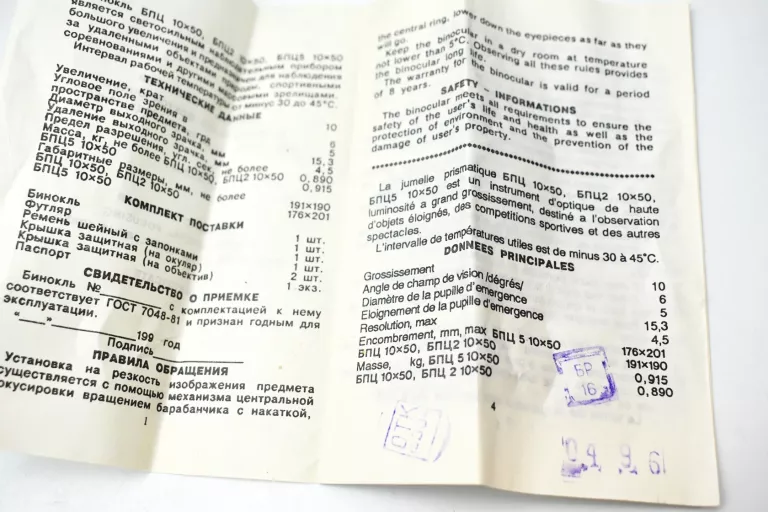 БИНОКЛЬ БПЦ 10×50, БПЦ2 10×50, БПЦ5 10×50
является светосильным наблюдательным прибором
большого увеличения и предназначен для наблюдения
за удаленными объектами природы, спортивными
соревнованиями и другими зрелищами.
Интервал рабочей температуры от минус 30 до 45°С.
ТЕХНИЧЕСКИЕ ДАННЫЕ
Увеличение, крат 10
Угловое поле зрения в
пространстве предмета, град 6
Диаметр выходного зрачка, мм 5
Удаление выходного зрачка, мм 15,3
Предел разрешения, угл. сек, не более 4,5
Масса, кг, не более БПЦ 10×50, БПЦ2 10×50 0,890
БПЦ5 10×50 0,915
Габаритные размеры, мм, не более
БПЦ 10×50, БПЦ2 10×50 191×190
БПЦ5 10×50 176×201
КОМПЛЕКТ ПОСТАВКИ
Бинокль 1 шт.
Футляр 1 шт.
Ремень шейный с запонками 1 шт.
Крышка защитная (на окуляр) 1 шт.
Крышка защитная (на объектив) 2 шт.
Паспорт 1 экз.
СВИДЕТЕЛЬСТВО О ПРИЕМКЕ
Бинокль № с комплектацией к нему
соответствует ГОСТ 7048-81 и признан годным для
эксплуатации.
«___»___________199 год
Подпись
ПРАВИЛА ОБРАЩЕНИЯ
Установка на резкость изображения предмета
осуществляется с помощью механизма центральной
фокусировки вращением барабанчика с накаткой,
1
the central ring, lower down the eyepieces as far as they
will go.
Keep the binocular in a dry room at temperature
not lower than 5°C. Observing all these rules provides
the binocular long life.
The warranty for the binocular is valid for a period
of 8 years.
SAFETY – INFORMATIONS
The binocular meets all requirements to ensure the
safety of the user's life and health as well as the
protection of environment and the prevention of the
damage of user's property.
La jumelle prismatique БПЦ 10×50, БПЦ2 10×50,
БПЦ5 10×50 est un instrument d'optique de haute
luminosité a grand grossissement, destiné a l'observation
d'objets éloignés, des competitions sportives et des autres
spectacles.
L'intervalle de températures utiles est de minus 30 à 45°C.
DONNEES PRINCIPALES
Grossissement 10
Angle de champ de vision /dégrés/ 6
Diamètre de la pupille d'emergence 5
Eloignement de la pupille d'emergence 15,3
Resolution, max 4,5
Encombrement, mm, max БПЦ 5 10×50 176×201
БПЦ 10×50, БПЦ2 10×50 191×190
Masse, kg, БПЦ 5 10×50 0,915
БПЦ 10×50, БПЦ 2 10×50 0,890
БР
16
ОТК
4